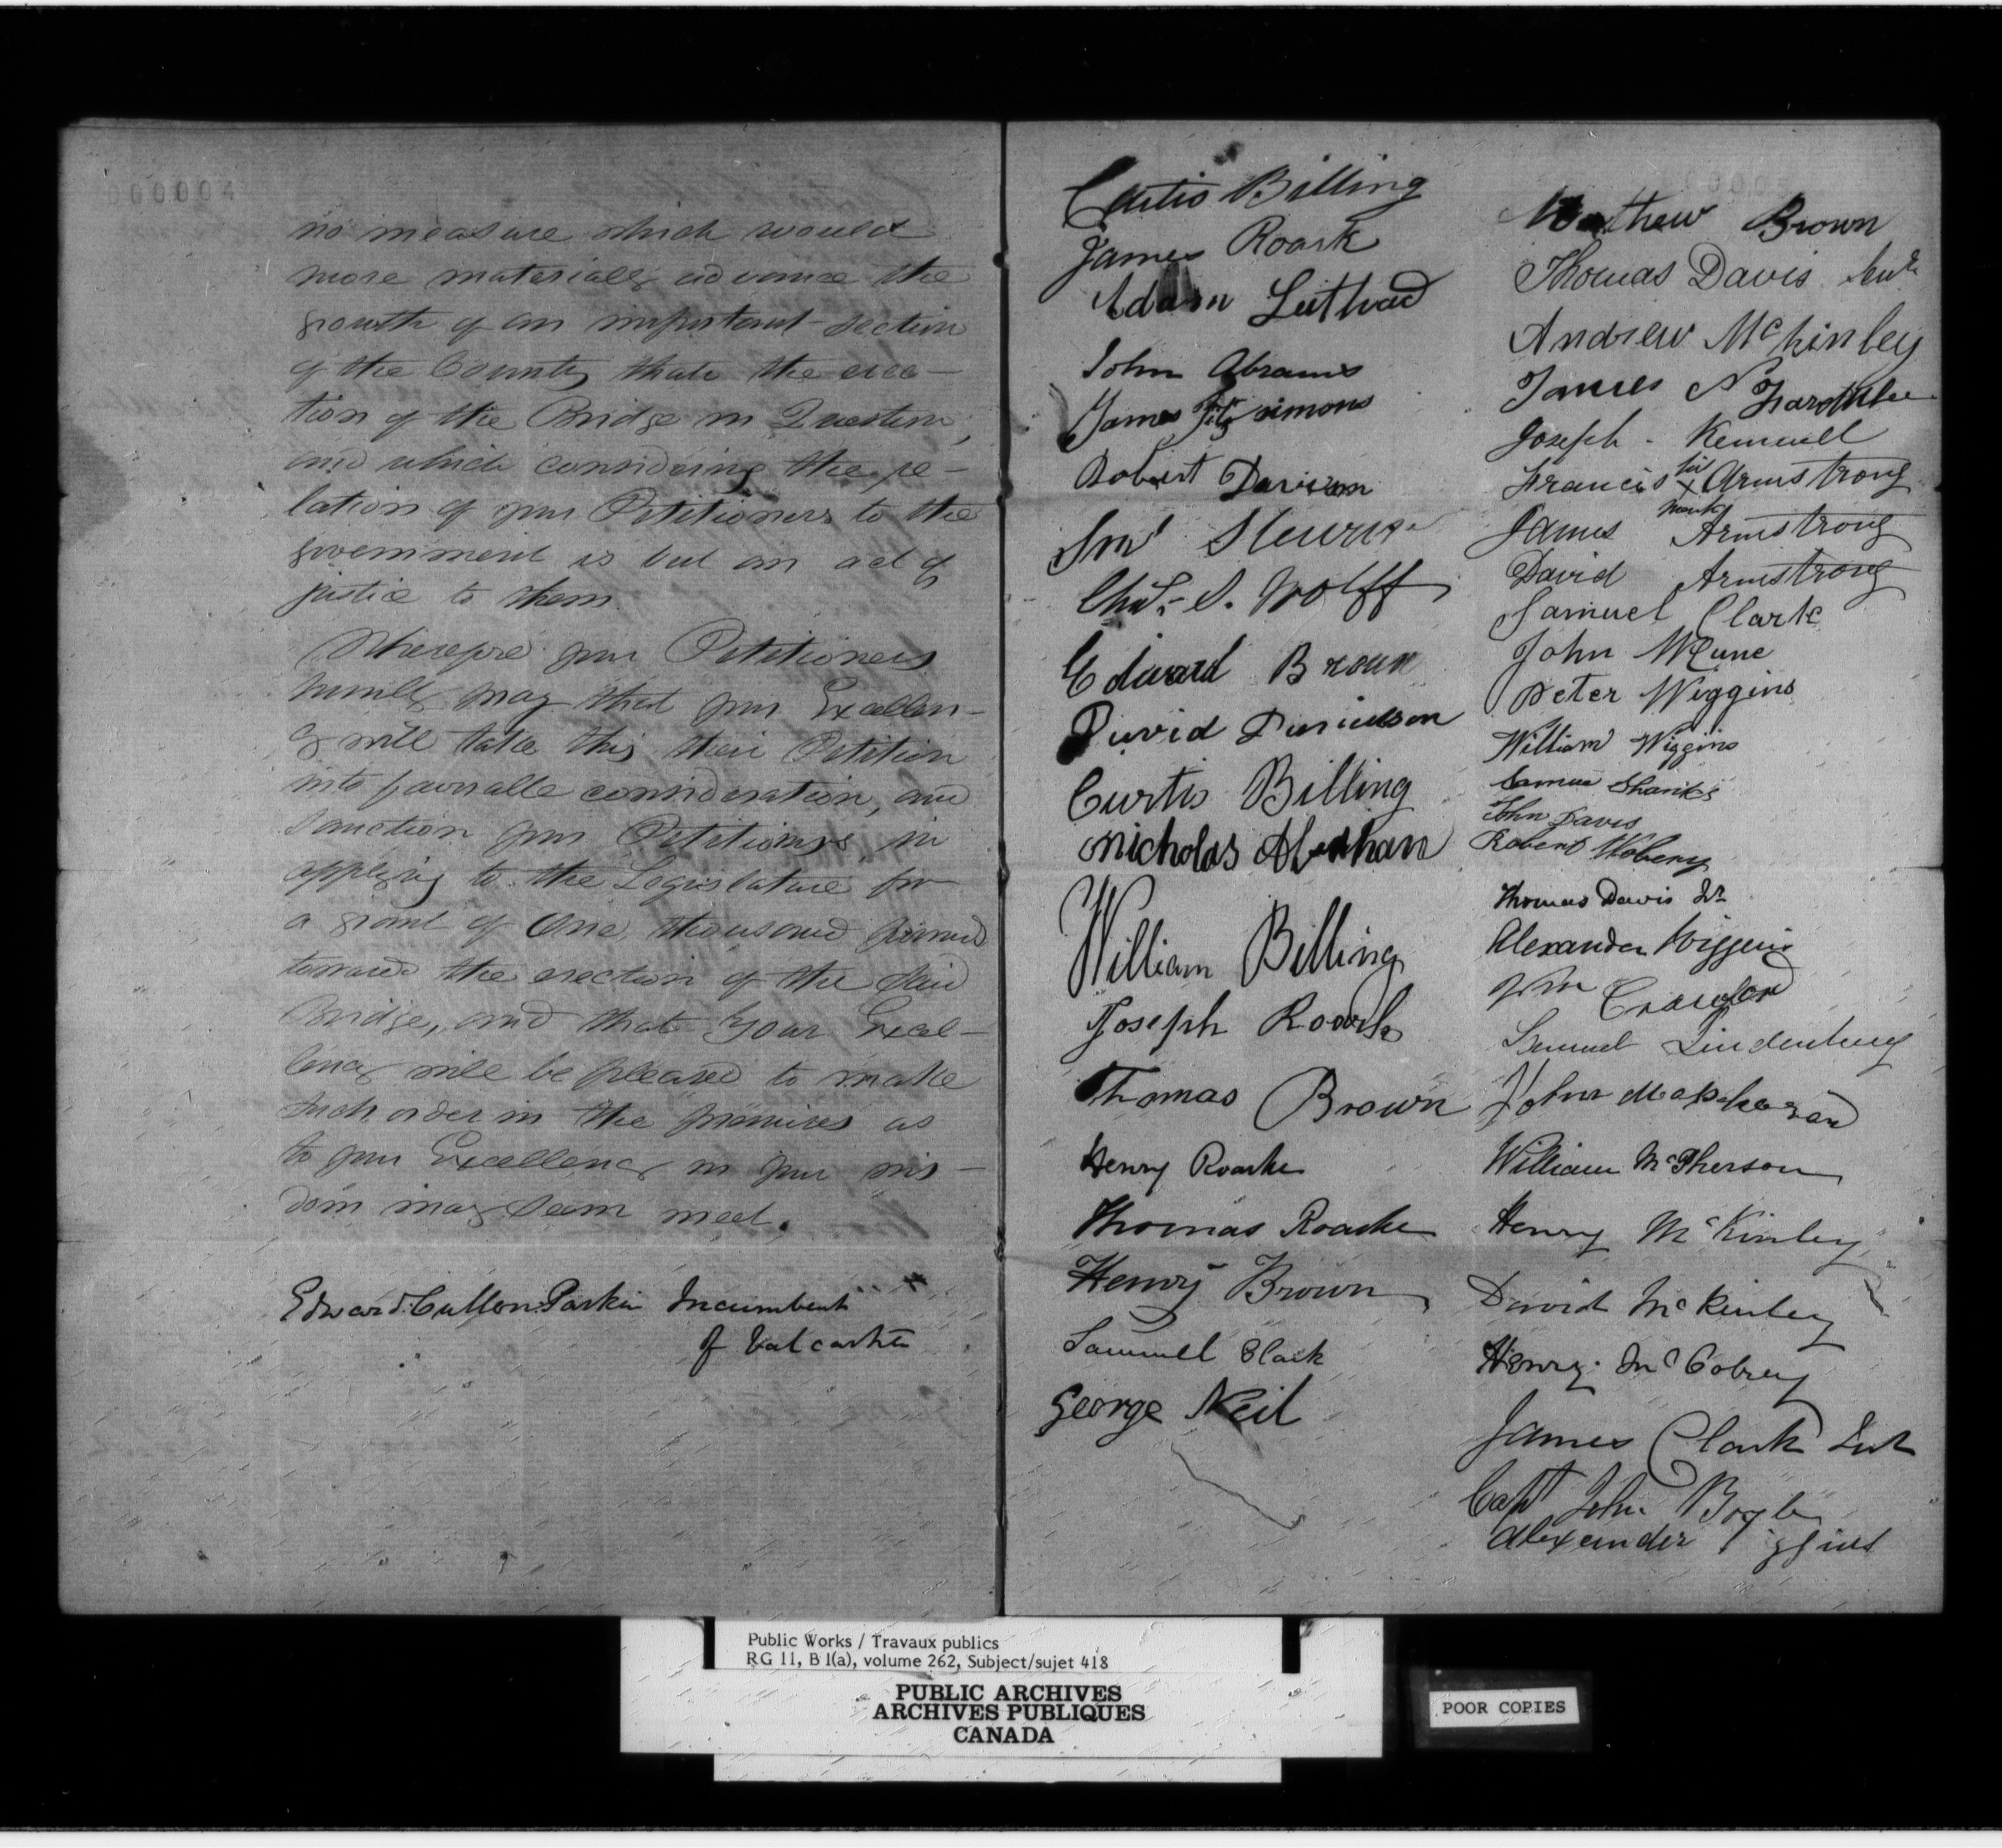 000004
no measure which would
more materially advance the
growth of an important section
of the County than the erec-
tion of the Bridge in Question,
and which considering the re-
lation of your Petitioners to the
government is but an act of
justice to them.
Wherefore your Petitioners
humbly pray that your Excellen-
cy will take this their Petition
into favorable consideration, and
sanction your Petitioners in
applying to the Legislature for
a grant of One thousand pounds
towards the erection of the said
Bridge, and that Your Excel-
lency will be pleased to make
such order in the premises as
to your Excellency in your wis-
dom may seem meet.
Edward Cullen Parkin Incumbent
of Valcartier
Curtis Billing
James Roark
Adam
John Abrams
James Fitzsimons
Robert Davison
Chas. S. Wolff
Edward Broun
David
Curtis Billing
Nicholas
William Billing
Joseph Roark
Thomas Brown
Henry Roarke
Thomas Roarke
Henry Brown
Samuell Clark
George Neil
Mathew Brown
Thomas Davis Senr
Andrew McKinley
James N
Joseph
Francis his x mark Armstrong
James Armstrong
David Armstrong
Samuel Clark
John McCune
Peter Wiggins
William Wiggins
Samuel Shanks
John Davis
Robert
Thomas Davis Jr
Alexander Wiggins
Wm Crawford
Samuel
John
William McPherson
Henry McKinley
David McKinley
Henry McCobrey
James Clark
Capt John Boyle
Alexander
Public Works / Travaux publics
RG 11, B 1(a), volume 262, Subject/sujet 418
PUBLIC ARCHIVES
ARCHIVES PUBLIQUES
CANADA
POOR COPIES